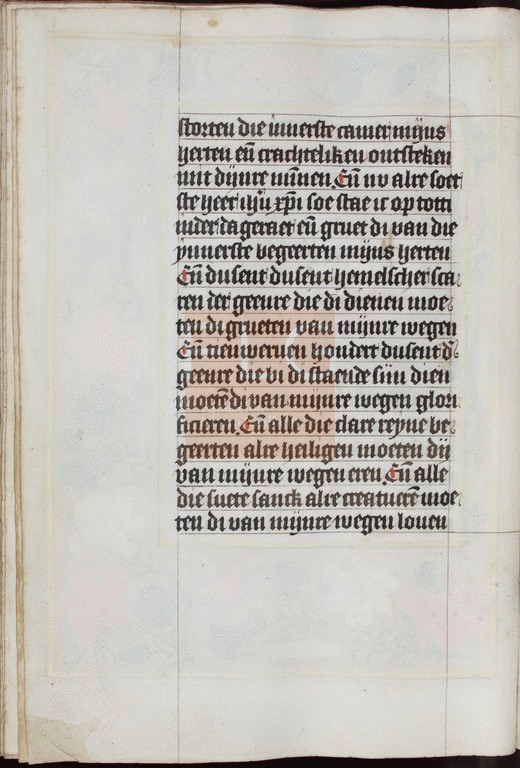 storten die innerste camer mijns
herten en̄ crachteliken ontsteken
mit dijnre mīnen. En̄ nv alre soet
ste heer ihū xp̄i soe stae ic op totti
inder dageraet en̄ gruet di van die
ynnerste begeerten mijns herten
En̄ dusent dusent hemelscher sca
ren der geenre die di dienen moe
ten di grueten van mijnre wegen
En̄ tienwernen hondert dusent d̄
geenre die bi di staende sijn dien
moetē di van mijnre wegen glori
ficieren. En̄ alle die clare reyne be
geerten alre heiligen moeten dij
van mijnre wegen eren. En̄ alle
die suete sanck alre creaturē moe
ten di van mijnre wegen louen